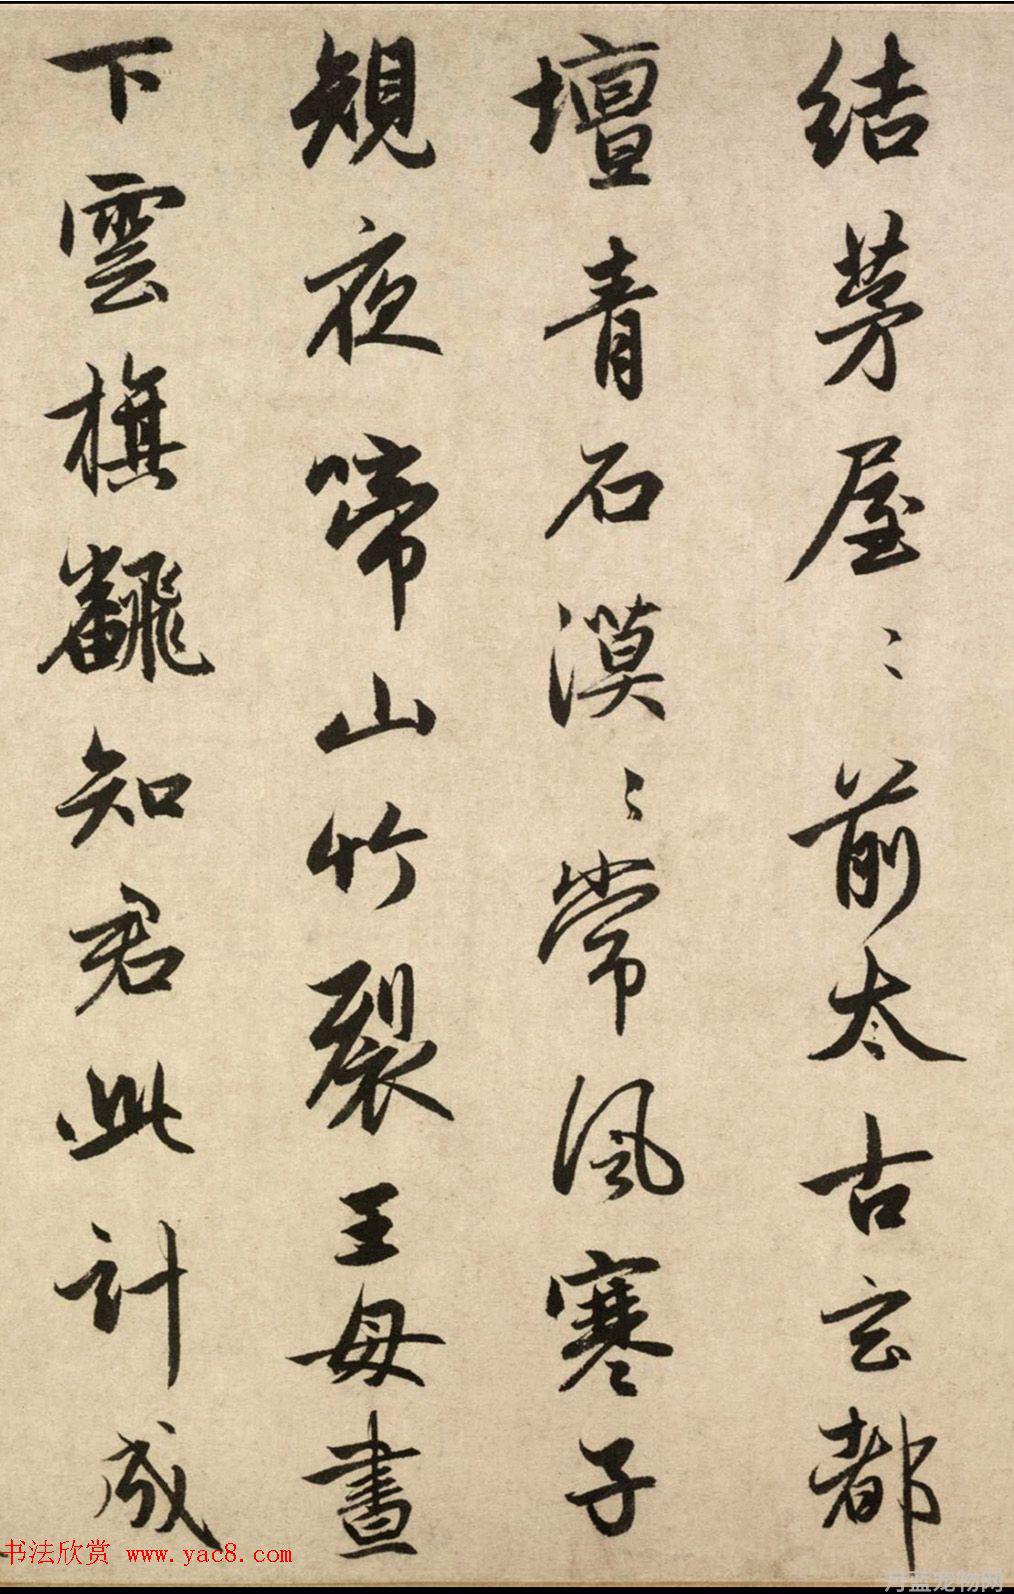 結茅屋〻前太古玄都
壇青石漠〻常風寒子
規夜啼山竹裂王母晝
下雲旗飜知君此計成
书法欣赏 www.yac8.com